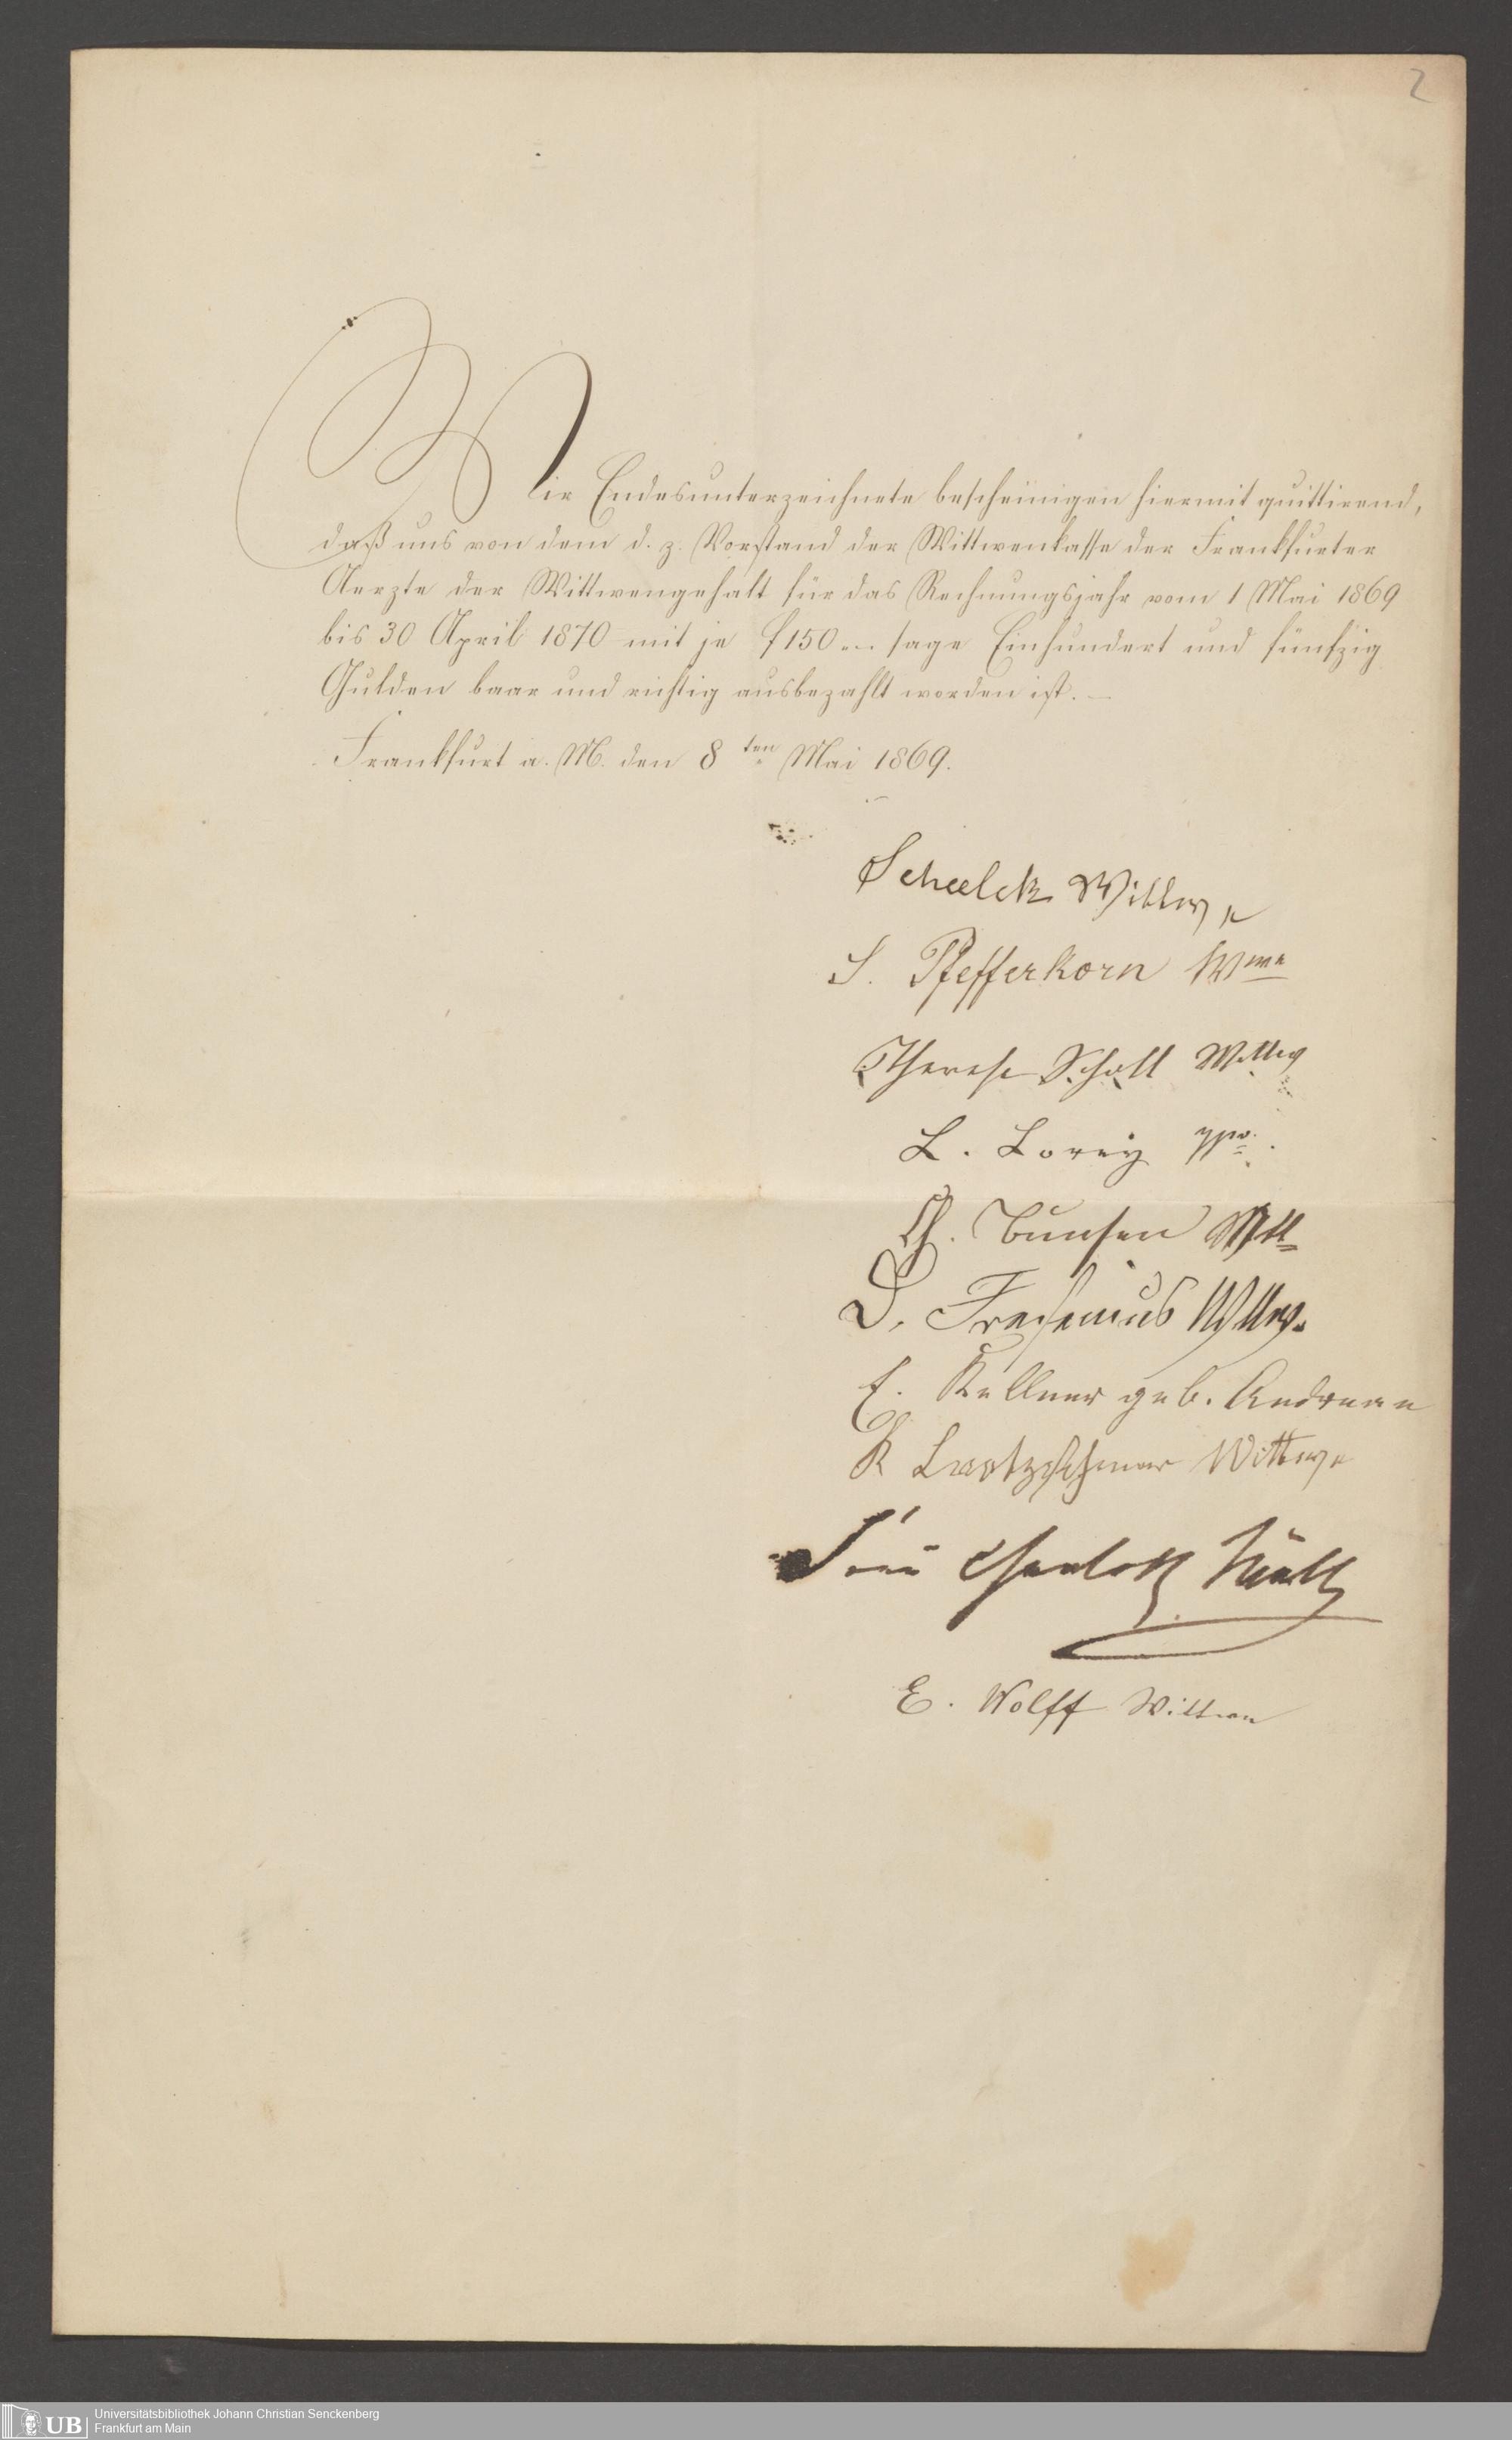 2
Wir Endesunterzeichnete bescheinigen hiermit quittirend,
daß uns von dem d. z. Vorstand der Wittwenkasse der Frankfurter
Aerzte der Wittwengehalt für das Rechnungsjahr vom 1 Mai 1869
bis 30 April 1870 mit je f 150 sage Einhundert und fünfzig
Gulden baar und richtig ausbezahlt worden ist. –
Frankfurt a. M. den 8ten Mai 1869.
Scheelck Wittwe
S. Pfefferkorn Wwe
Therese Scholl Wittw
L. Lorey Ww.
Ch. Bunsen Wtt
D. Fresenius Wittw.
E. Kellner geb. Andreae
R Wittwe
Frau Charlott
E. Wolff Wittwe
UB Universitätsbibliothek Johann Christian Senckenberg
Frankfurt am Main